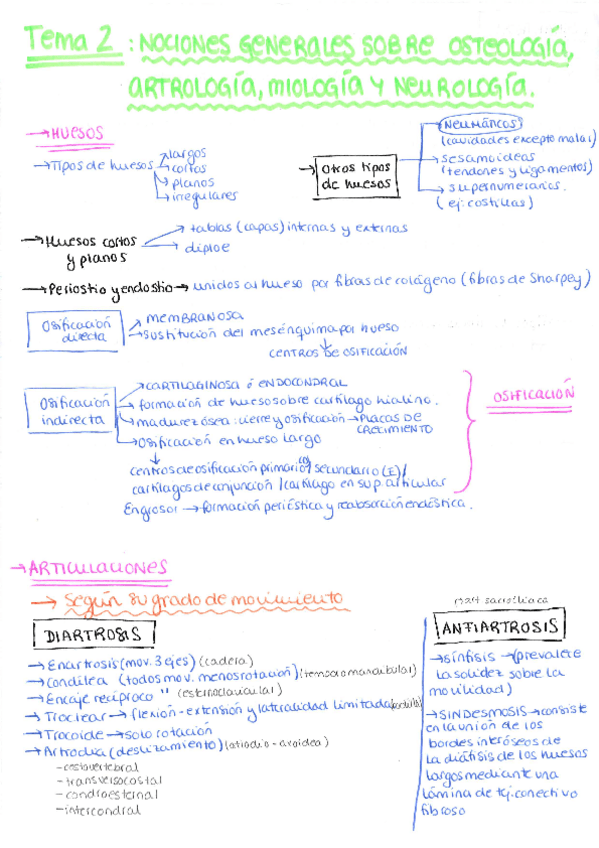 Tema 2: NOCIONES GENERALES SOBRE OSTEOLOGÍA,
ARTROLOGÍA, MIOLOGÍA Y NEUROLOGÍA.
→ HUESOS
→ Tipos de huesos
largos
cortos
planos
irregulares
→ Otros tipos de huesos
Neumáticos
(cavidades excepto malar)
sesamoideas
(tendones y ligamentos)
supernumerarios.
(ej: costillas)
→ Huesos cortos y planos
tablas (capas) internas y externas
diploe
→ Periostio y endostio → unidos al hueso por fibras de colágeno (fibras de Sharpey)
Osificación directa
MEMBRANOSA
sustitución del mesénquima por hueso
CENTROS DE OSIFICACIÓN
Osificación indirecta
CARTILAGINOSA ó ENDOCONDRAL
formación de hueso sobre cartílago hialino.
madurez ósea: cierre y osificación → PLACAS DE CRECIMIENTO
Osificación en hueso largo
centros de osificación primario / secundario (E) /
cartílagos de conjunción / cartílago en sup. articular
Engrosor → formación perióstica y reabsorción endóstica.
OSIFICACIÓN
→ ARTICULACIONES
→ Según su grado de movimiento
DIARTROSIS
→ Enartrosis (mov. 3 ejes) (cadera)
→ Condílea (todos mov. menos rotación) (temporomandibular)
→ Encaje recíproco " (esternoclavicular)
→ Troclear → flexión-extensión y lateralidad limitada
→ Trocoide → solo rotación
→ Artrodia (deslizamiento)
- costovertebral
- transversocostal
- condroesternal
- intercondral
sacroilíaca
ANFIARTROSIS
→ sínfisis → (prevalece
la solidez sobre la
movilidad)
→ SINDESMOSIS → consiste
en la unión de los
bordes interóseos de
la diáfisis de los huesos
largos mediante una
lámina de tej. conectivo
fibroso